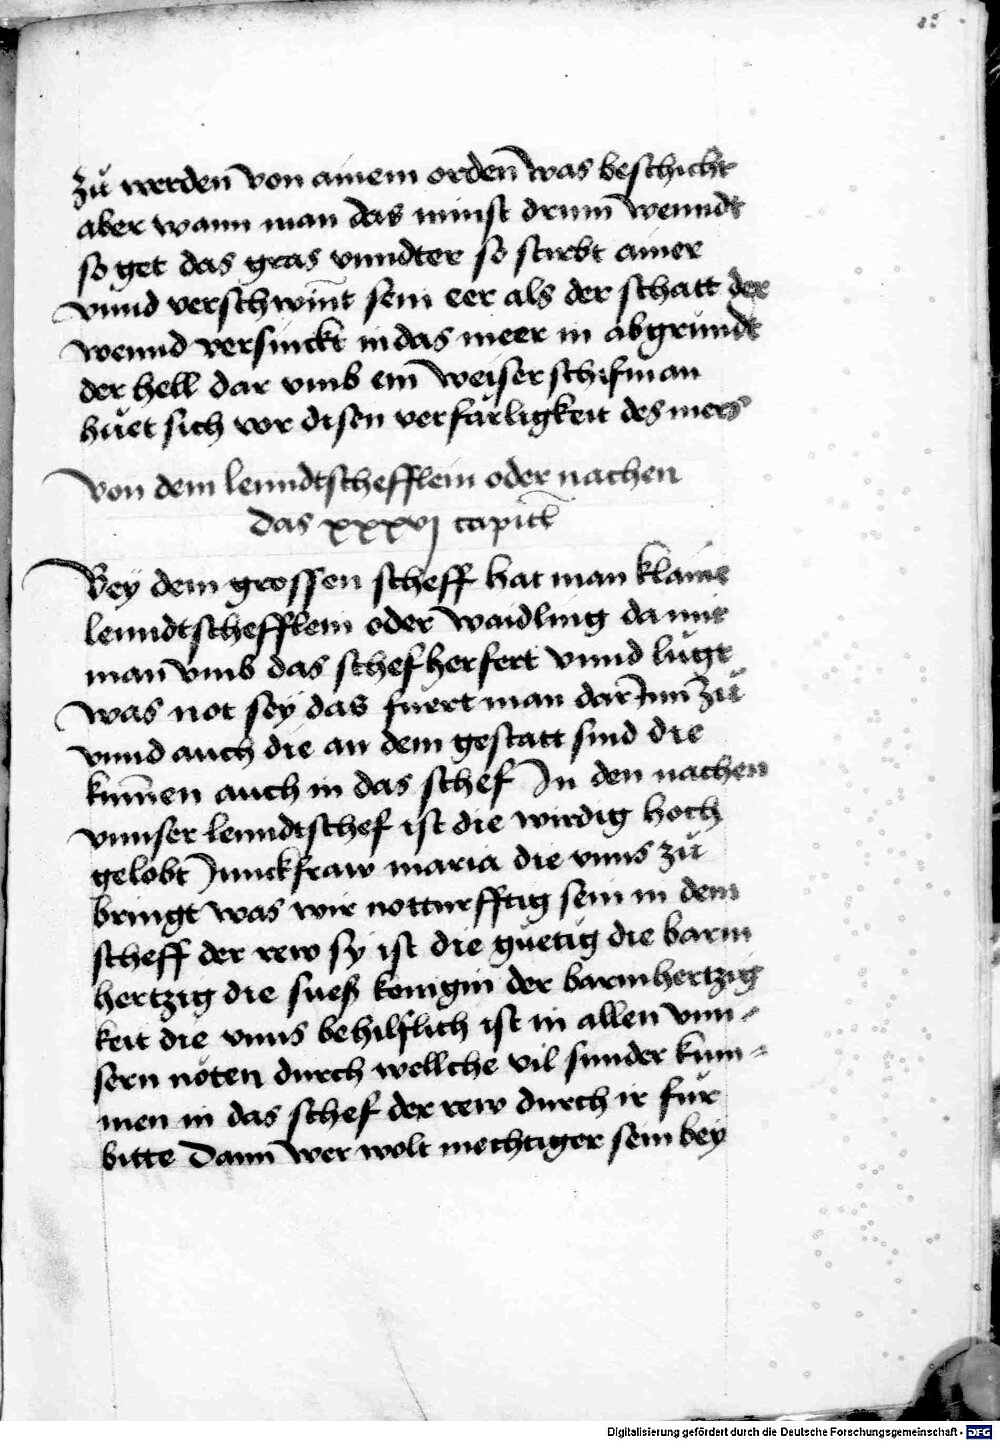 zů werden von ainem orden was beschicht
aber wann man das minst drum̄ wenndt
so get das gras vnndter so stirbt ainer
vnnd verschwint sein eer als der schatt der
wennd versinckt in das meer in abgrundt
der hell dar vmb ein weiser schifman
huet sich vor disen verfarligkeit des mers
Von dem lenndtschefflein oder nachen
das xxxvj capitl
Bey dem grossen scheff hat man klaine
lenndtschefflein oder waidling da mit
man vmb das schef herfert vnnd lugt
was not seÿ das fuert man dar Inn zů
vnnd auch die an dem gestatt sind die
kumen auch in das schef In den nachen
vnnser lenndtschef ist die wirdig hoch
gelobt Junckfraw maria die vnns zů
bringt was wir notturfftig sein in dem
scheff der rew sy ist die guetig die barm
hertzig die sueß konigin der barmhertzig
keit die vnns behilflich ist in allen vnn⸗
sern nöten durch wellche vil sunder kum⸗
men in das schef der rew durch ir für
bitte Dann wer wolt mechtiger sein bey
Digitalisierung gefördert durch die Deutsche Forschungsgemeinschaft - DFG